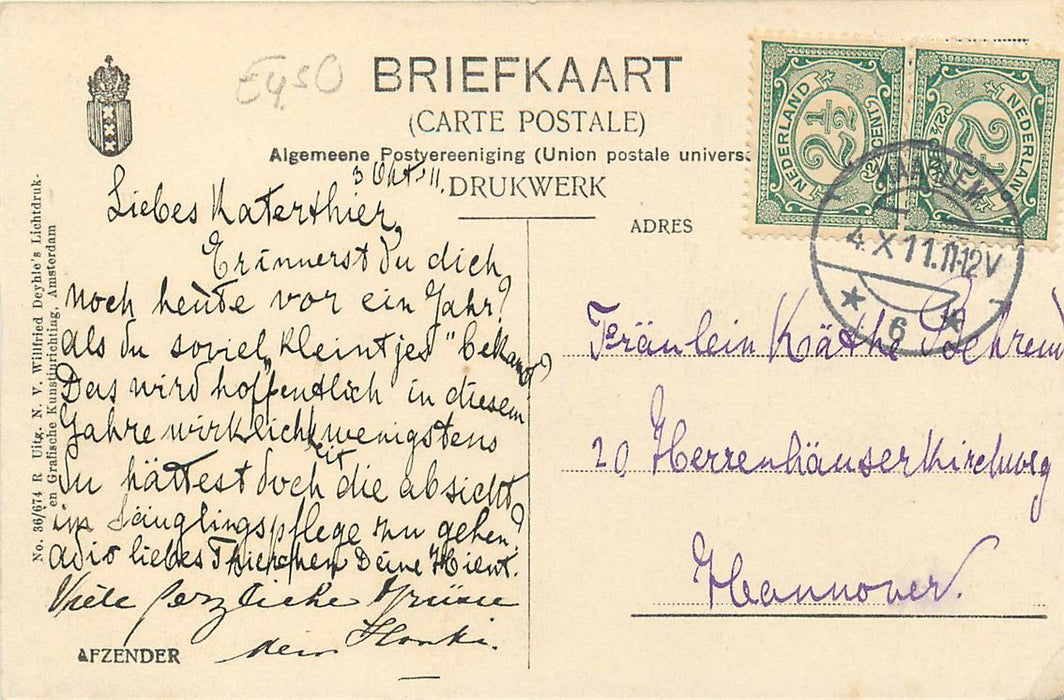 E450
BRIEFKAART
(CARTE POSTALE)
Algemeene Postvereeniging (Union postale univers
DRUKWERK
3 Okt 11.
Liebes Katerthier,
Erinnerst Du dich
noch heute vor ein Jahr?
als du soviel „kleintjes" bekamst?
Das wird hoffentlich in diesem
Jahre Wirklichkeit, wenigstens
Du hättest doch die absicht
in Säuglingspflege zu gehen?
adio liebes Thierchen Deine Hient.
Viele herzliche Grüsse
dein Hanki.
AFZENDER
No. 36/674 R Uitg. N. V. Wilfried Deyhle's Lichtdruk-
en Grafische Kunstinrichting, Amsterdam
NEDERLAND
2½
CENT
NEDERLAN
2½
HAARLEM
4.X11.11-12V
6
ADRES
Fräulein Käthe Behrend
20 Herrenhäuserkirchweg
Hannover.